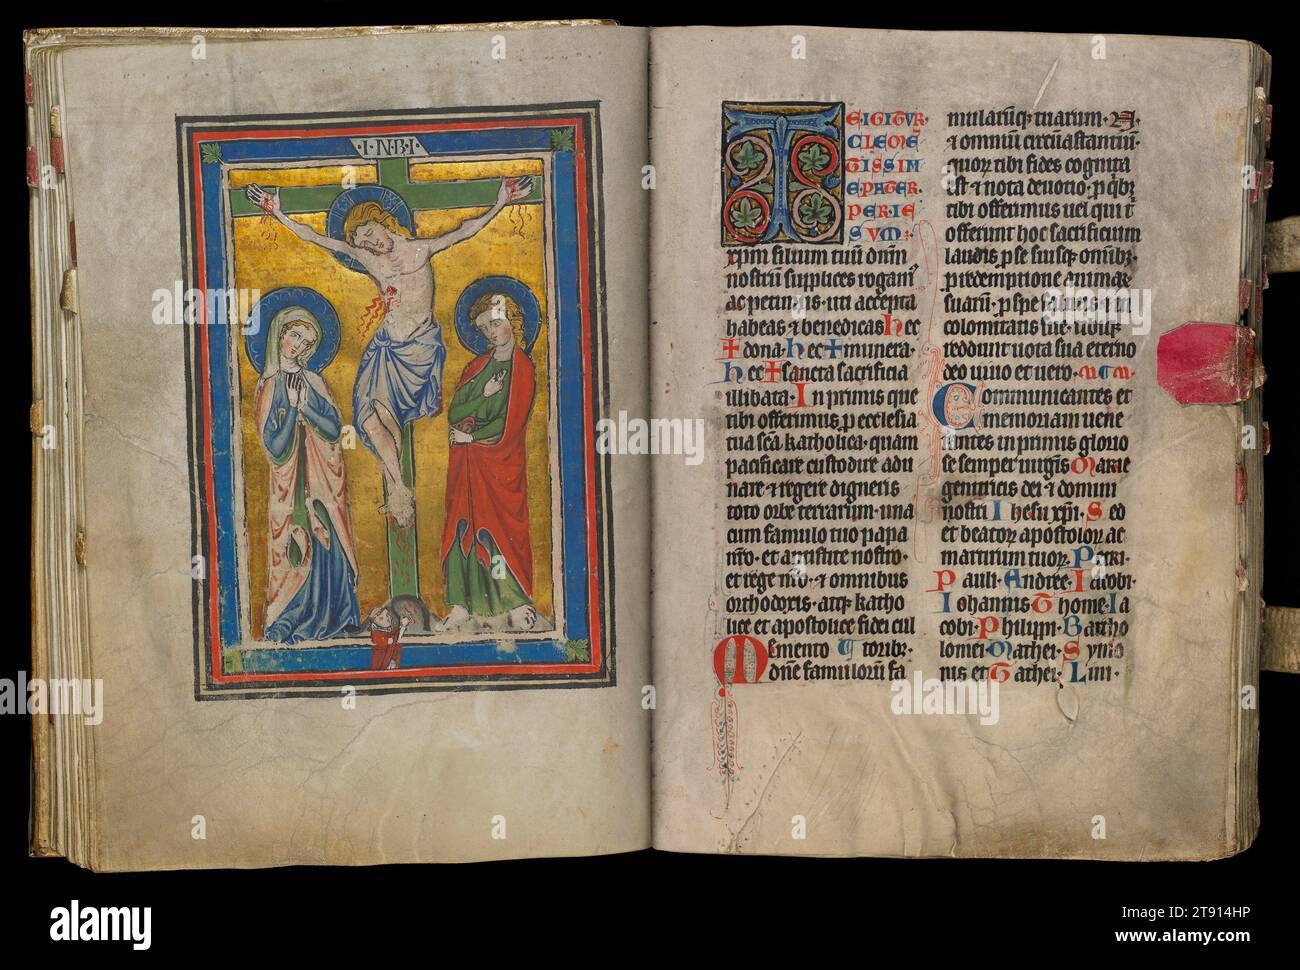 ·I·N·R·I·
TEIGITUR·
CLEME
TISSIM
E·PATER·
PER·IE
SUM·
xpm filium tuum dnm
nostrum supplices rogam
ac petimus· uti accepta
habeas ⁊ benedicas hec
✝ dona· hec ✝ munera·
hec ✝ sancta sacrificia
illibata· In primis que
tibi offerimus p ecclesia
tua sca katholica· quam
pacificare custodire adu
nare ⁊ regere digneris
toto orbe terrarum· una
cum famulo tuo papa
nro· et antistite nostro·
et rege nro· ⁊ omnibus
orthodoxis· atq katho
lice et apostolice fidei cul
Memento toribz·
dne famulorum fa
mularuq tuarum· N·
⁊ omniu circuastantium
quor tibi fides cognita
est ⁊ nota deuotio· p qbz
tibi offerimus uel qui t
offerunt hoc sacrificium
laudis· p se suisq omibz·
p redemptione animar
suaru· p spe salutis· ⁊ in
colomitatis sue· tibiq
reddunt uota sua eterno
deo uiuo et uero·
Communicantes et
memoriam uene
rantes in primis glorio
se semper uirginis Marie
genitricis dei ⁊ domini
nostri Ihesu xpi· Sed
et beator apostolor ac
martirum tuor· Petri·
Pauli· Andree· Iacobi·
Iohannis· Thome· Ia
cobi· Philippi· Bartho
lomei· Mathei· Symo
nis et Tathei· Lini·
alamy
alamy
Image ID: 2T914HP
www.alamy.com